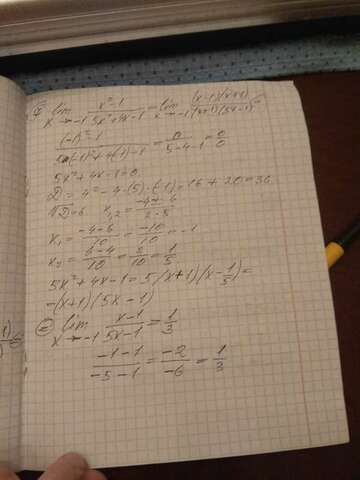 lim x→-1 (x²-1)/(5x²+4x-1) = lim x→-1 (x-1)(x+1)/(x+1)(5x-1) =
((-1)²-1)/(5(-1)²+4(-1)-1) = 0/(5-4-1) = 0/0
5x²+4x-1=0
D = 4²-4·(5)·(-1) = 16+20=36
√D=6 x1,2 = (-4±6)/(2·5)
x1 = (-4-6)/10 = -10/10 = -1
x2 = (6-4)/10 = 2/10 = 1/5
5x²+4x-1 = 5(x+1)(x-1/5) =
=(x+1)(5x-1)
= lim x→-1 (x-1)/(5x-1) = 1/3
(-1-1)/(-5-1) = -2/-6 = 1/3